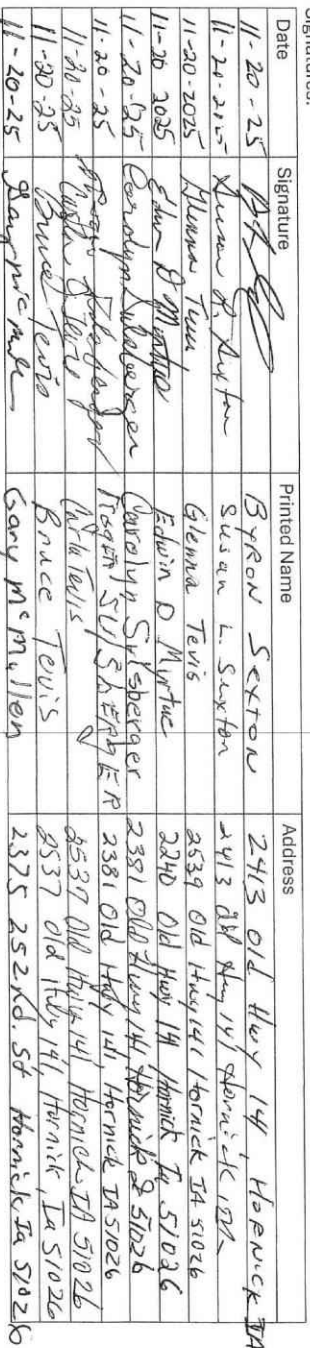 Signatures:
Date Signature Printed Name Address
11-20-25 BYRON SEXTON 2413 Old Hwy 141, HORNICK IA
11-20-2025 Susan L. Sexton Susan L. Sexton 2413 Old Hwy 141 Hornick IA
11-20-2025 Glenna Tevis Glenna Tevis 2539 Old Hwy 141 Hornick IA 51026
11-20 2025 Edwin D Edwin D 2240 Old Hwy 141 Hornick Ia 51026
11-20-25 Carolyn Sulsberger Carolyn Sulsberger 2381 Old Hwy 141, Hornick 51026
11-20-25 Roger SULSBERGER 2381 Old Hwy 141, Hornick IA 51026
11-20-25 Tevis Tevis 2537 Old Hwy 141 Hornick IA 51026
11-20-25 Bruce Tevis Bruce Tevis 2537 Old Hwy 141, Hornick, Ia 51026
11-20-25 Gary McMullen 2375 252nd. St Hornick Ia 51026